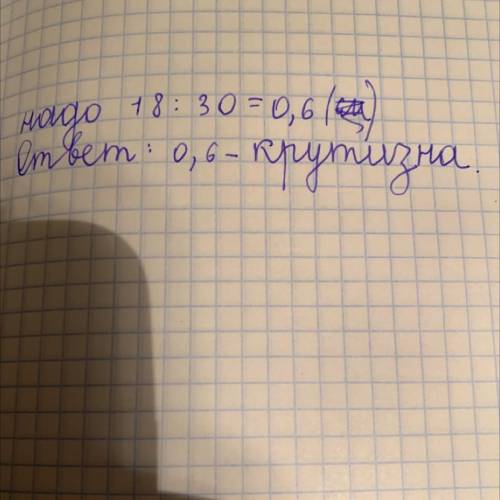 надо 18 : 30 = 0,6 ( )
Ответ: 0,6 - крутизна.